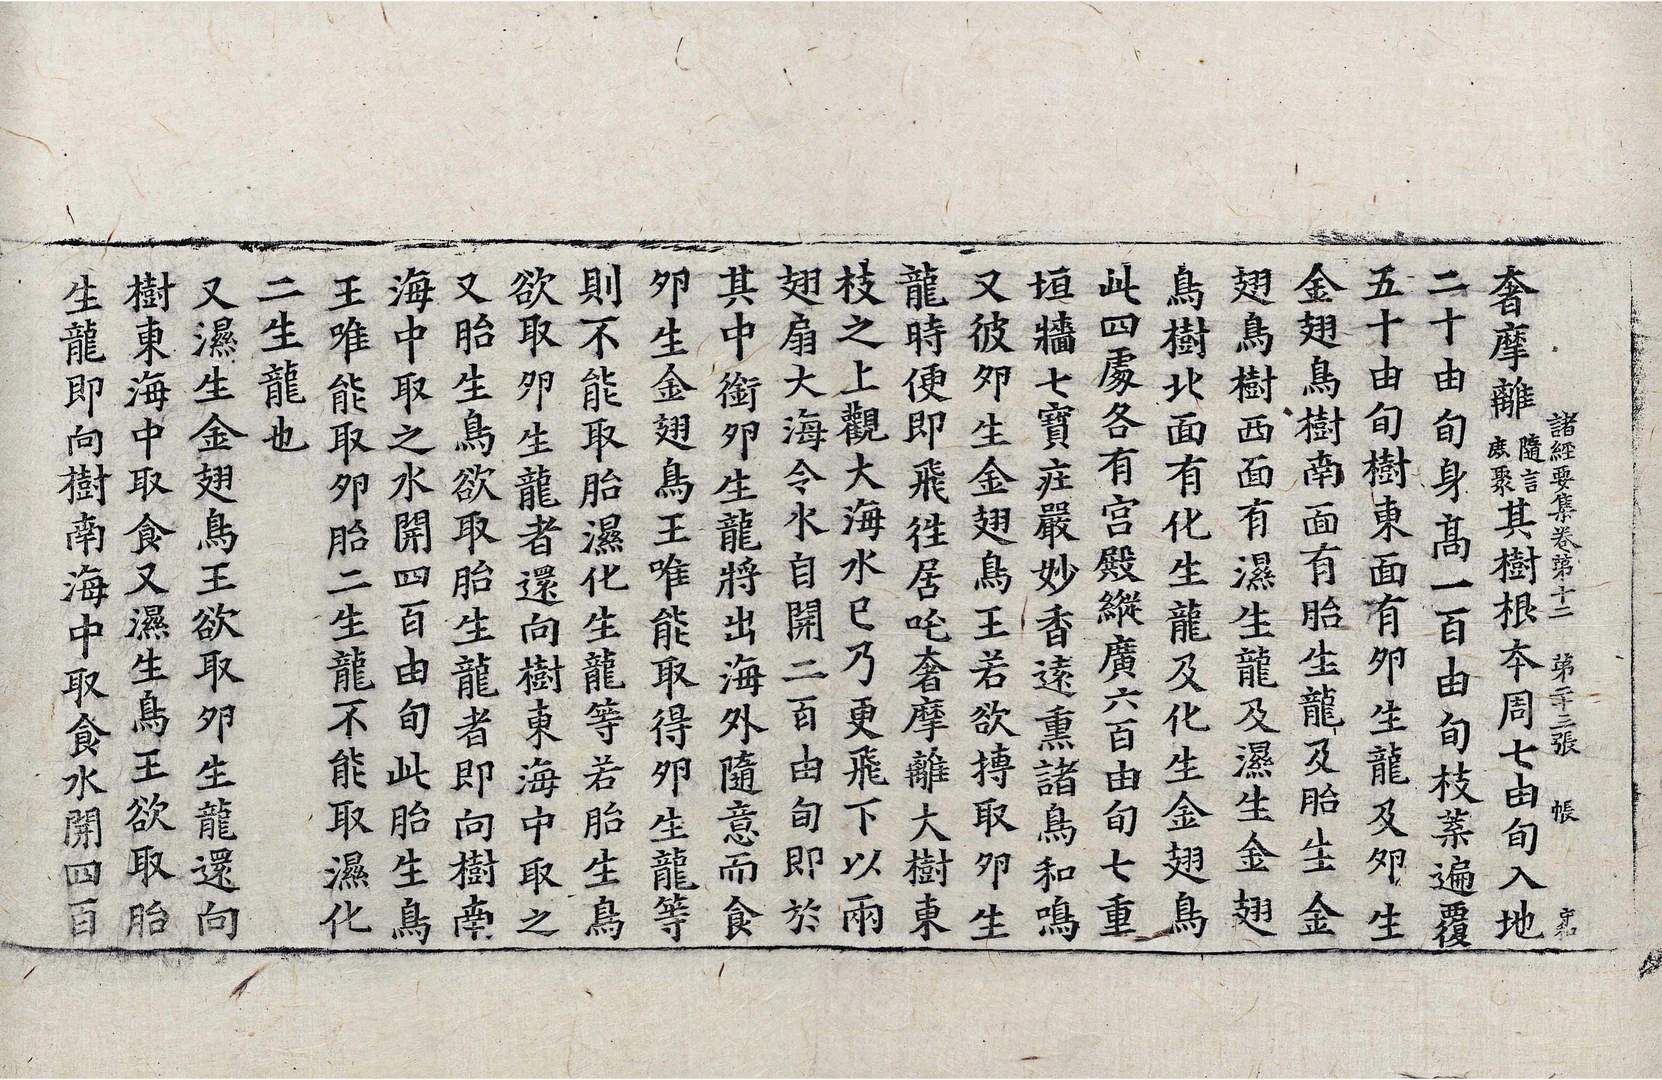 諸經要集卷第十二 第二十三張 帳
奢摩離隨言鹿聚其樹根夲周七由旬入地
二十由旬身髙一百由旬枝葉遍覆
五十由旬樹東面有夘生龍及夘生
金翅鳥樹南面有胎生龍及胎生金
翅鳥樹西面有濕生龍及濕生金翅
鳥樹北面有化生龍及化生金翅鳥
此四處各有宫殿縱廣六百由旬七重
垣牆七寶庄嚴妙香逺熏諸鳥和鳴
又彼夘生金翅鳥王若欲摶取夘生
龍時便即飛徃居吒奢摩離大樹東
枝之上觀大海水已乃更飛下以兩
翅扇大海令水自開二百由旬即於
其中銜夘生龍將出海外隨意而食
夘生金翅鳥王唯能取得夘生龍等
則不能取胎濕化生龍等若胎生鳥
欲取夘生龍者還向樹東海中取之
又胎生鳥欲取胎生龍者即向樹南
海中取之水開四百由旬此胎生鳥
王唯能取夘胎二生龍不能取濕化
二生龍也
又濕生金翅鳥王欲取夘生龍還向
樹東海中取食又濕生鳥王欲取胎
生龍即向樹南海中取食水開四百